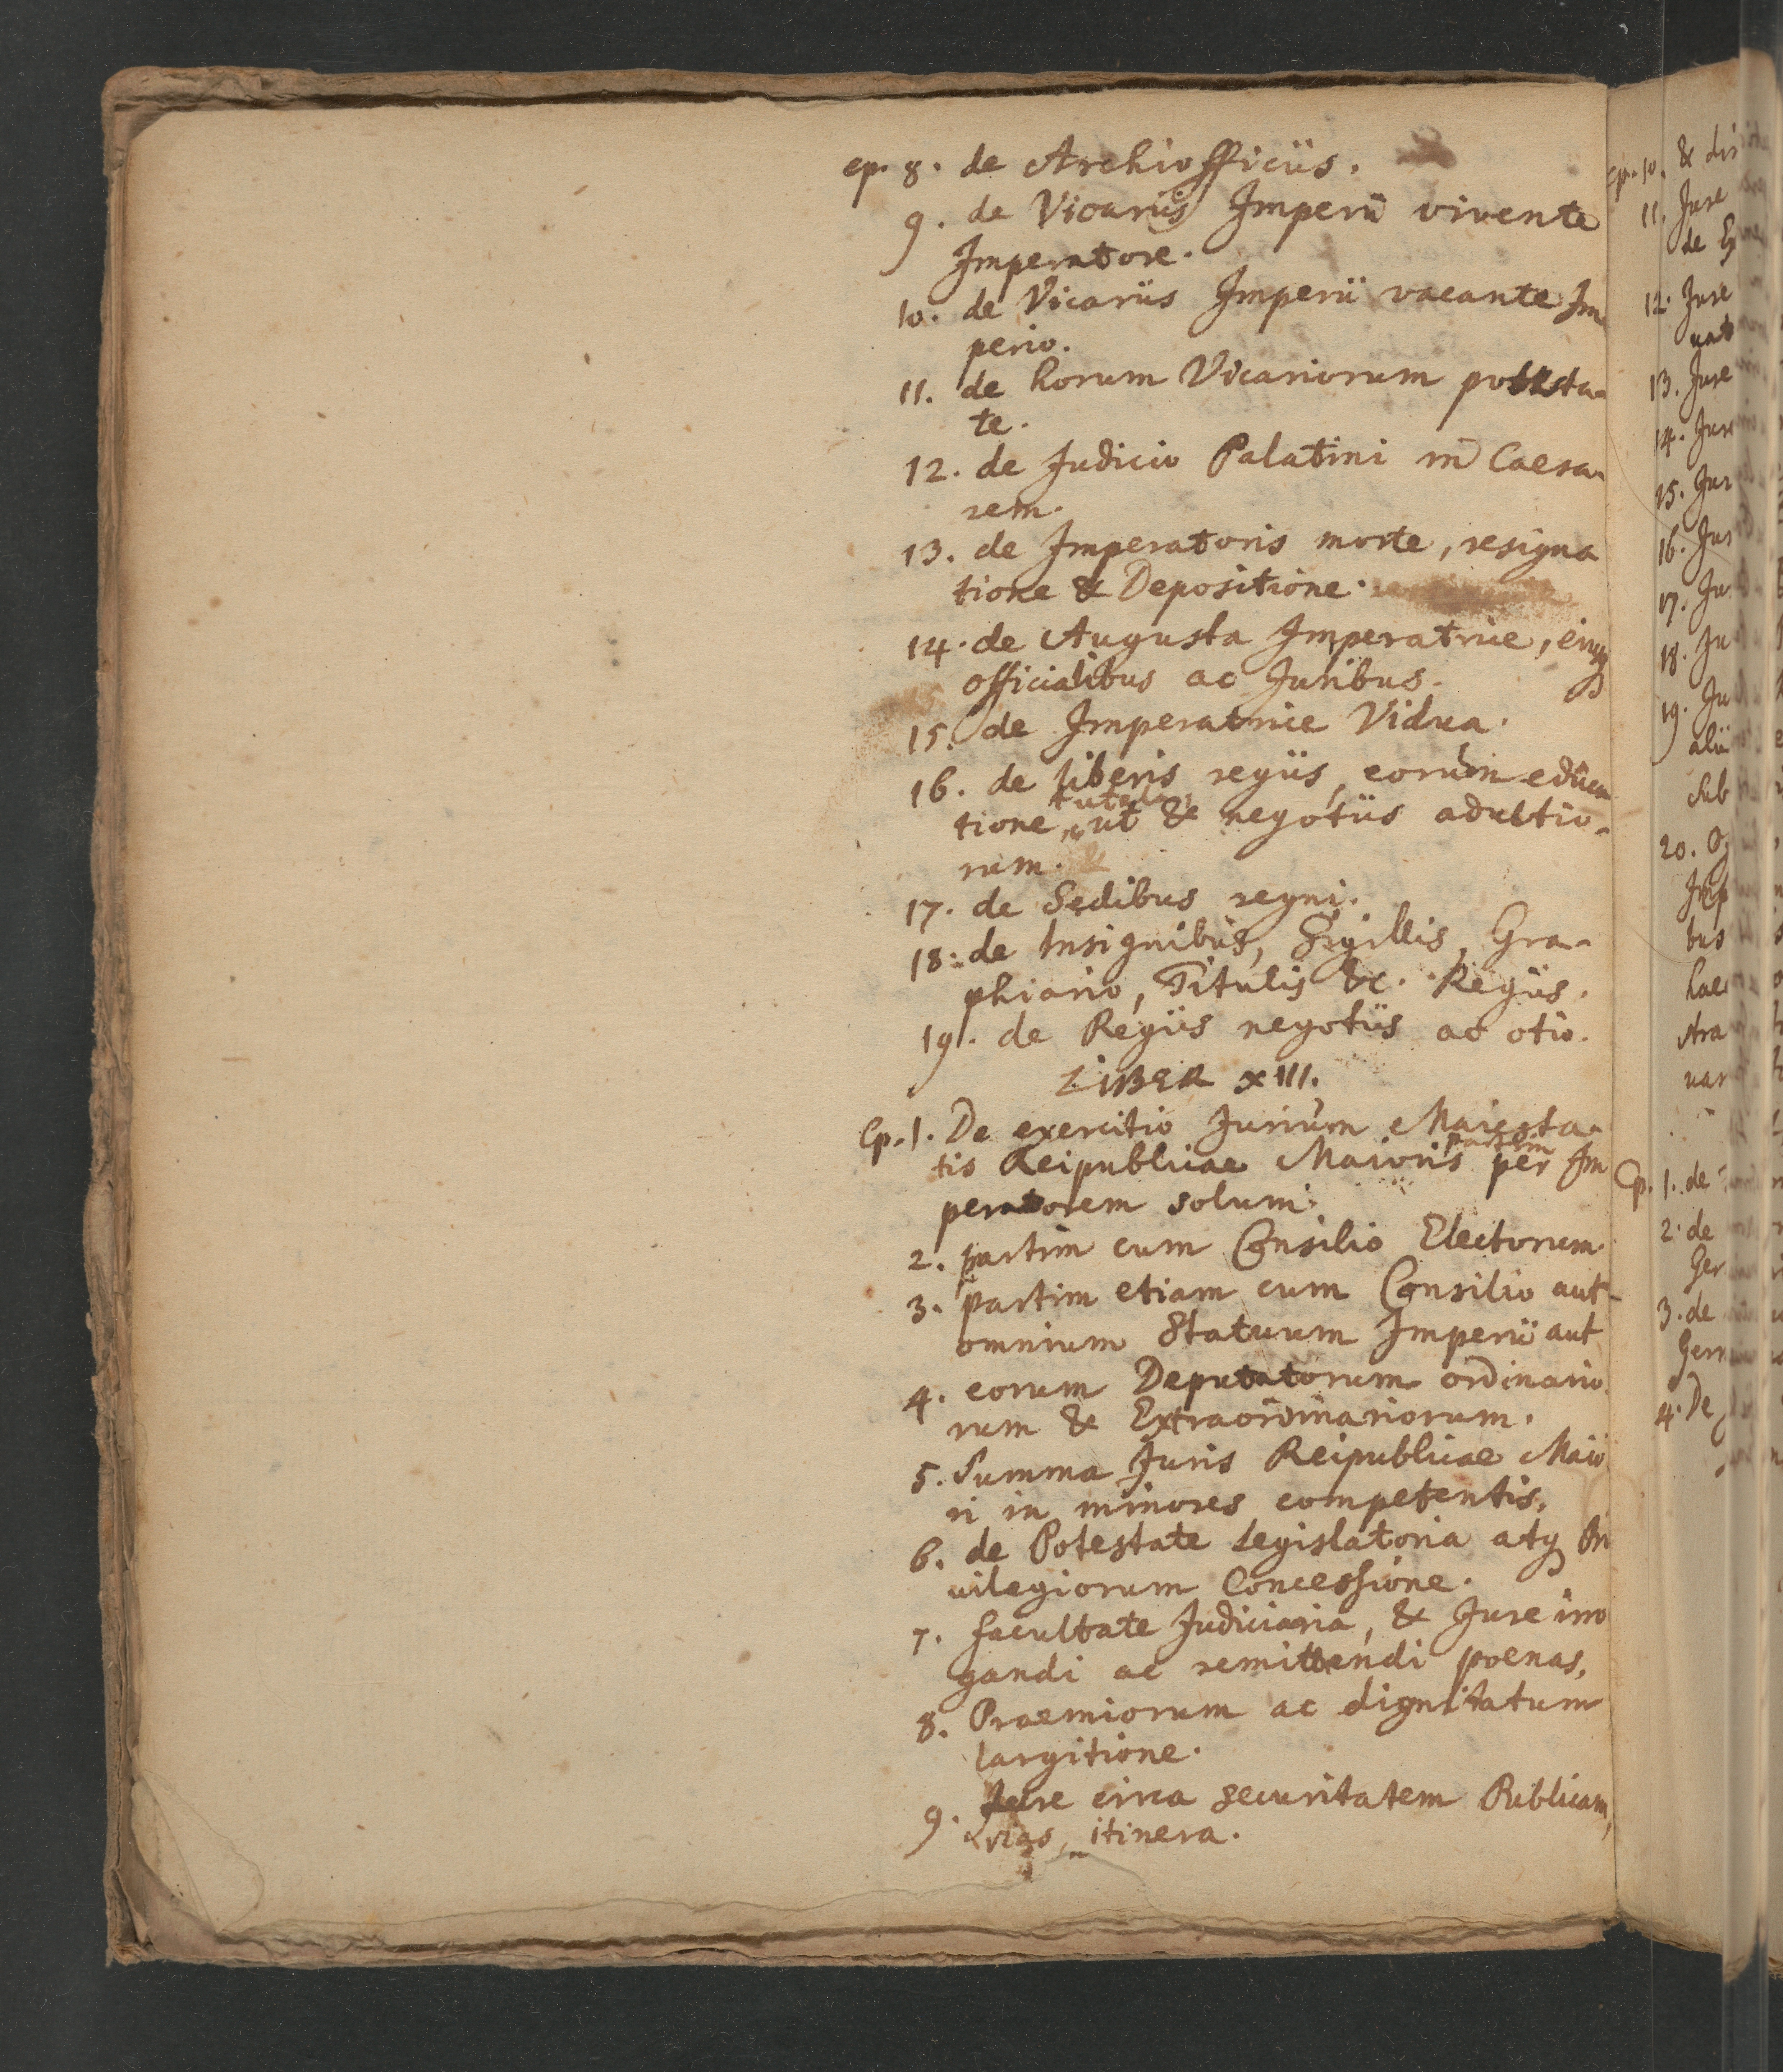 cp. 8. de Archiofficiis.
9. de Vicariis Imperii vivente
Imperatore.
10. de Vicariis Imperii vacante Im
perio.
11. de horum Vicariorum potesta-
te.
12. de Judicio Palatini in Caesa-
rem.
13. de Imperatoris morte, resigna
tione & Depositione.
14. de Augusta Imperatrice, eiusq
officialibus ac Juribus.
15. de Imperatrice Vidua.
16. de liberis regiis, eorum educa
tutela
tione, ut & negotiis adultio-
rum.
17. de Sedibus regni.
18. de Insignibus, Sigillis, Gra-
phiario, Titulis &c. Regiis.
19. de Regiis negotiis ac otio.
LIBER XIII.
Cp. 1. De exercitio Jurium Maiesta-
partim
tis Reipublicae Maioris per Im
peratorem solum.
2. partim cum Consilio Electorum
3. partim etiam cum Consilio aut
omnium Statuum Imperii aut
4. eorum Deputatorum ordinario
rum & Extraordinariorum.
5. Summa Juris Reipublicae Maio
ri in minores competentis.
6. de Potestate Legislatoria atq Pri
uilegiorum Concessione.
7. facultate Judiciaria, & Jure irro
gandi ac remittendi poenas,
8. Praemiorum ac dignitatum
largitione.
9. Jure circa securitatem Publicam,
vias, itinera.
cp. 10. & di
11. Jure
de
12. Jure
13. Jure
14. Jure
15. Jur
16. Jur
17. Ju
18. Ju
19. Ju
alii
sub
20.
Imp
bus
hae
stra
uar
Cp. 1. de
2. de
Ger
3. de
Germ
4. De